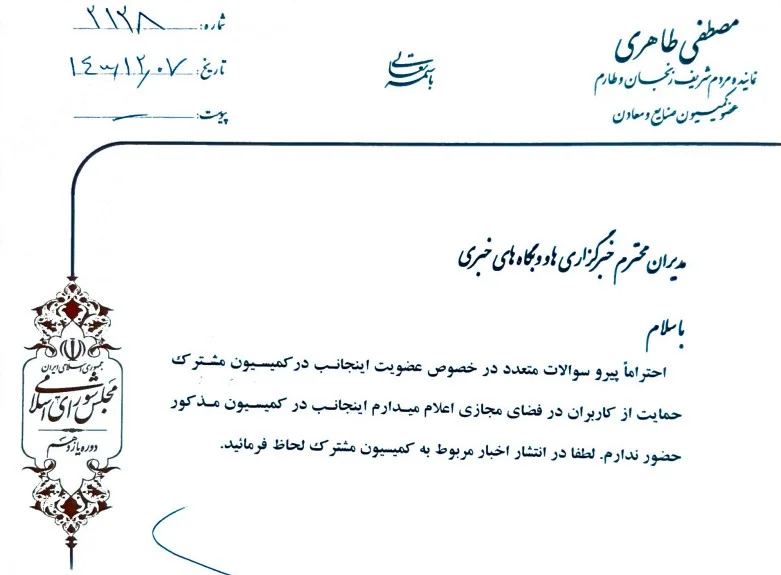 مصطفی طاهری
نماینده مردم شریف زنجان و طارم
عضو کمیسیون صنایع و معادن
باسمه تعالی
شماره: ۳۱۳۸
تاریخ: ۱۴۰۰/۱۲/۰۷
پیوست:
مدیران محترم خبرگزاری ها و وبگاه های خبری
با سلام
احتراماً پیرو سوالات متعدد در خصوص عضویت اینجانب در کمیسیون مشترک
حمایت از کاربران در فضای مجازی اعلام میدارم اینجانب در کمیسیون مذکور
حضور ندارم. لطفا در انتشار اخبار مربوط به کمیسیون مشترک لحاظ فرمائید.
جمهوری اسلامی ایران
مجلس شورای اسلامی
دوره یازدهم